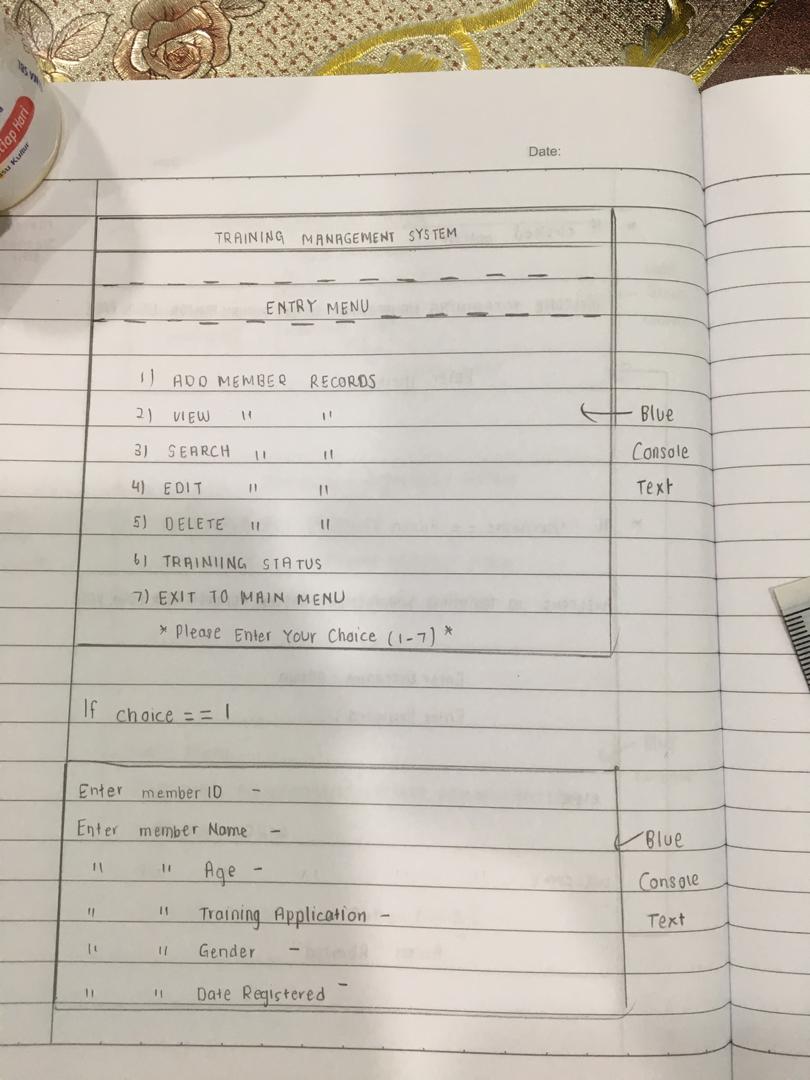 185 kkal
Setiap Hari
Susu Kultur
Date:
TRAINING MANAGEMENT SYSTEM
ENTRY MENU
1) ADD MEMBER RECORDS
2) VIEW " "
3) SEARCH " "
4) EDIT " "
5) DELETE " "
6) TRAINIING STATUS
7) EXIT TO MAIN MENU
* Please Enter Your Choice (1-7) *
← Blue
Console
Text
If choice == 1
Enter member ID -
Enter member Name -
" " Age -
" " Training Application -
" " Gender -
" " Date Registered -
← Blue
Console
Text